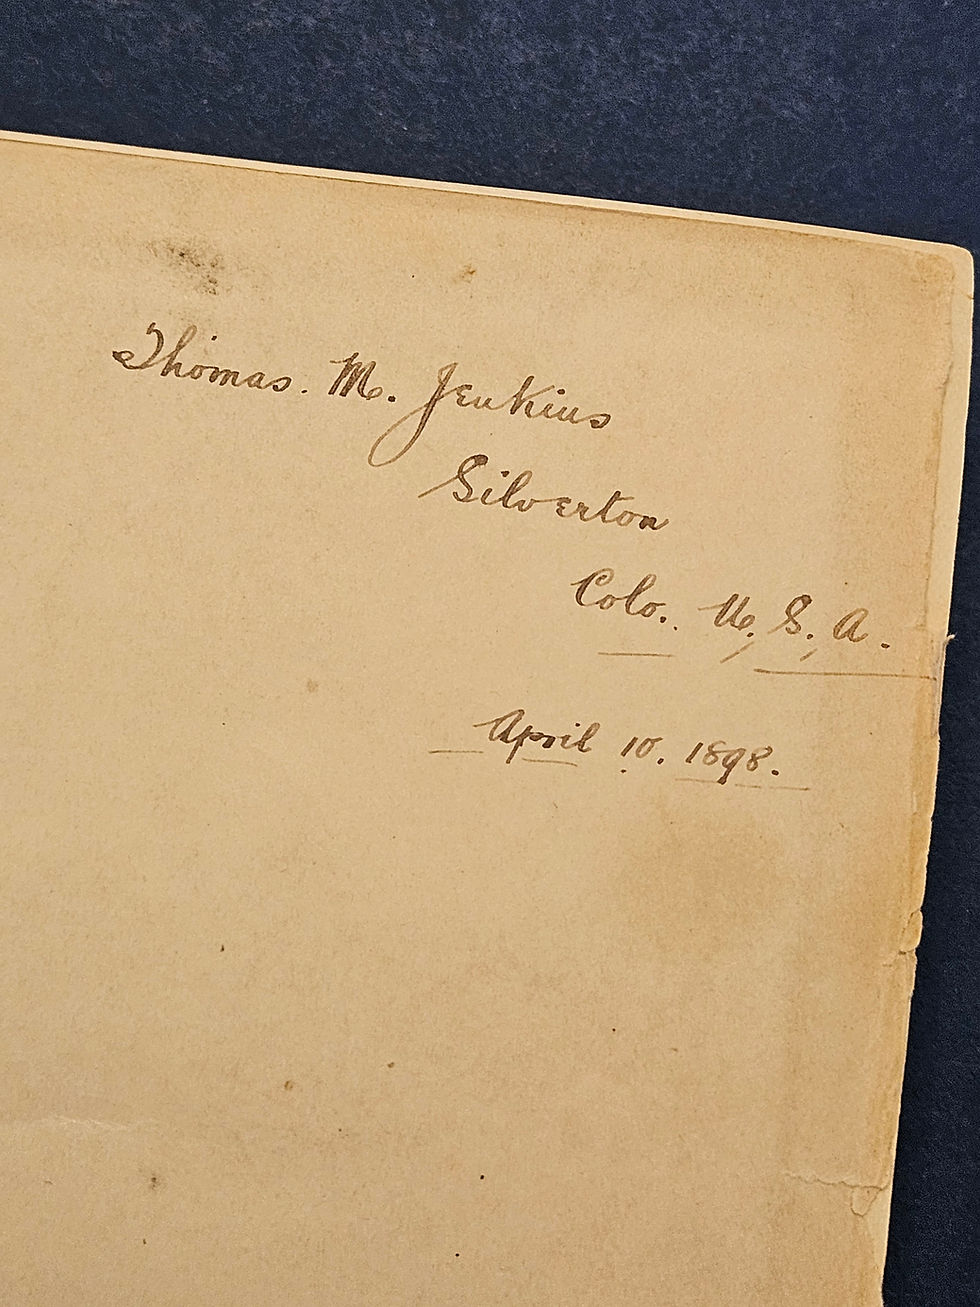 Thomas. M. Jenkins
Silverton
Colo. U. S. A.
April 10. 1898.